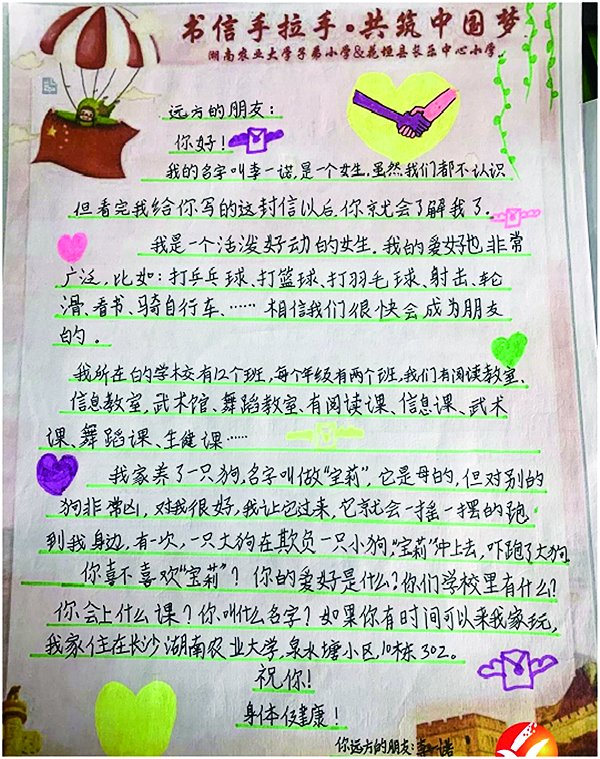 书信手拉手·共筑中国梦
湖南农业大学子弟小学&花垣县长乐中心小学
远方的朋友：
你好！
我的名字叫李一诺，是一个女生。虽然我们都不认识
但看完我给你写的这封信以后，你就会了解我了。
我是一个活泼好动的女生。我的爱好也非常
广泛，比如：打乒乓球、打篮球、打羽毛球、射击、轮
滑、看书、骑自行车、……相信我们很快会成为朋友
的。
我所在的学校有12个班，每个年级有两个班，我们有阅读教室、
信息教室，武术馆、舞蹈教室、有阅读课、信息课、武术
课、舞蹈课、生健课……
我家养了一只狗，名字叫做“宝莉”，它是母的，但对别的
狗非常凶，对我很好，我让它过来，它就会一摇一摆的跑
到我身边，有一次，一只大狗在欺负一只小狗，“宝莉”冲上去，吓跑了大狗
你喜不喜欢“宝莉”？你的爱好是什么？你们学校里有什么？
你会上什么课？你叫什么名字？如果你有时间可以来我家玩，
我家住在长沙湖南农业大学，泉水塘小区，10栋302。
祝你！
身体健康！
你远方的朋友：李一诺